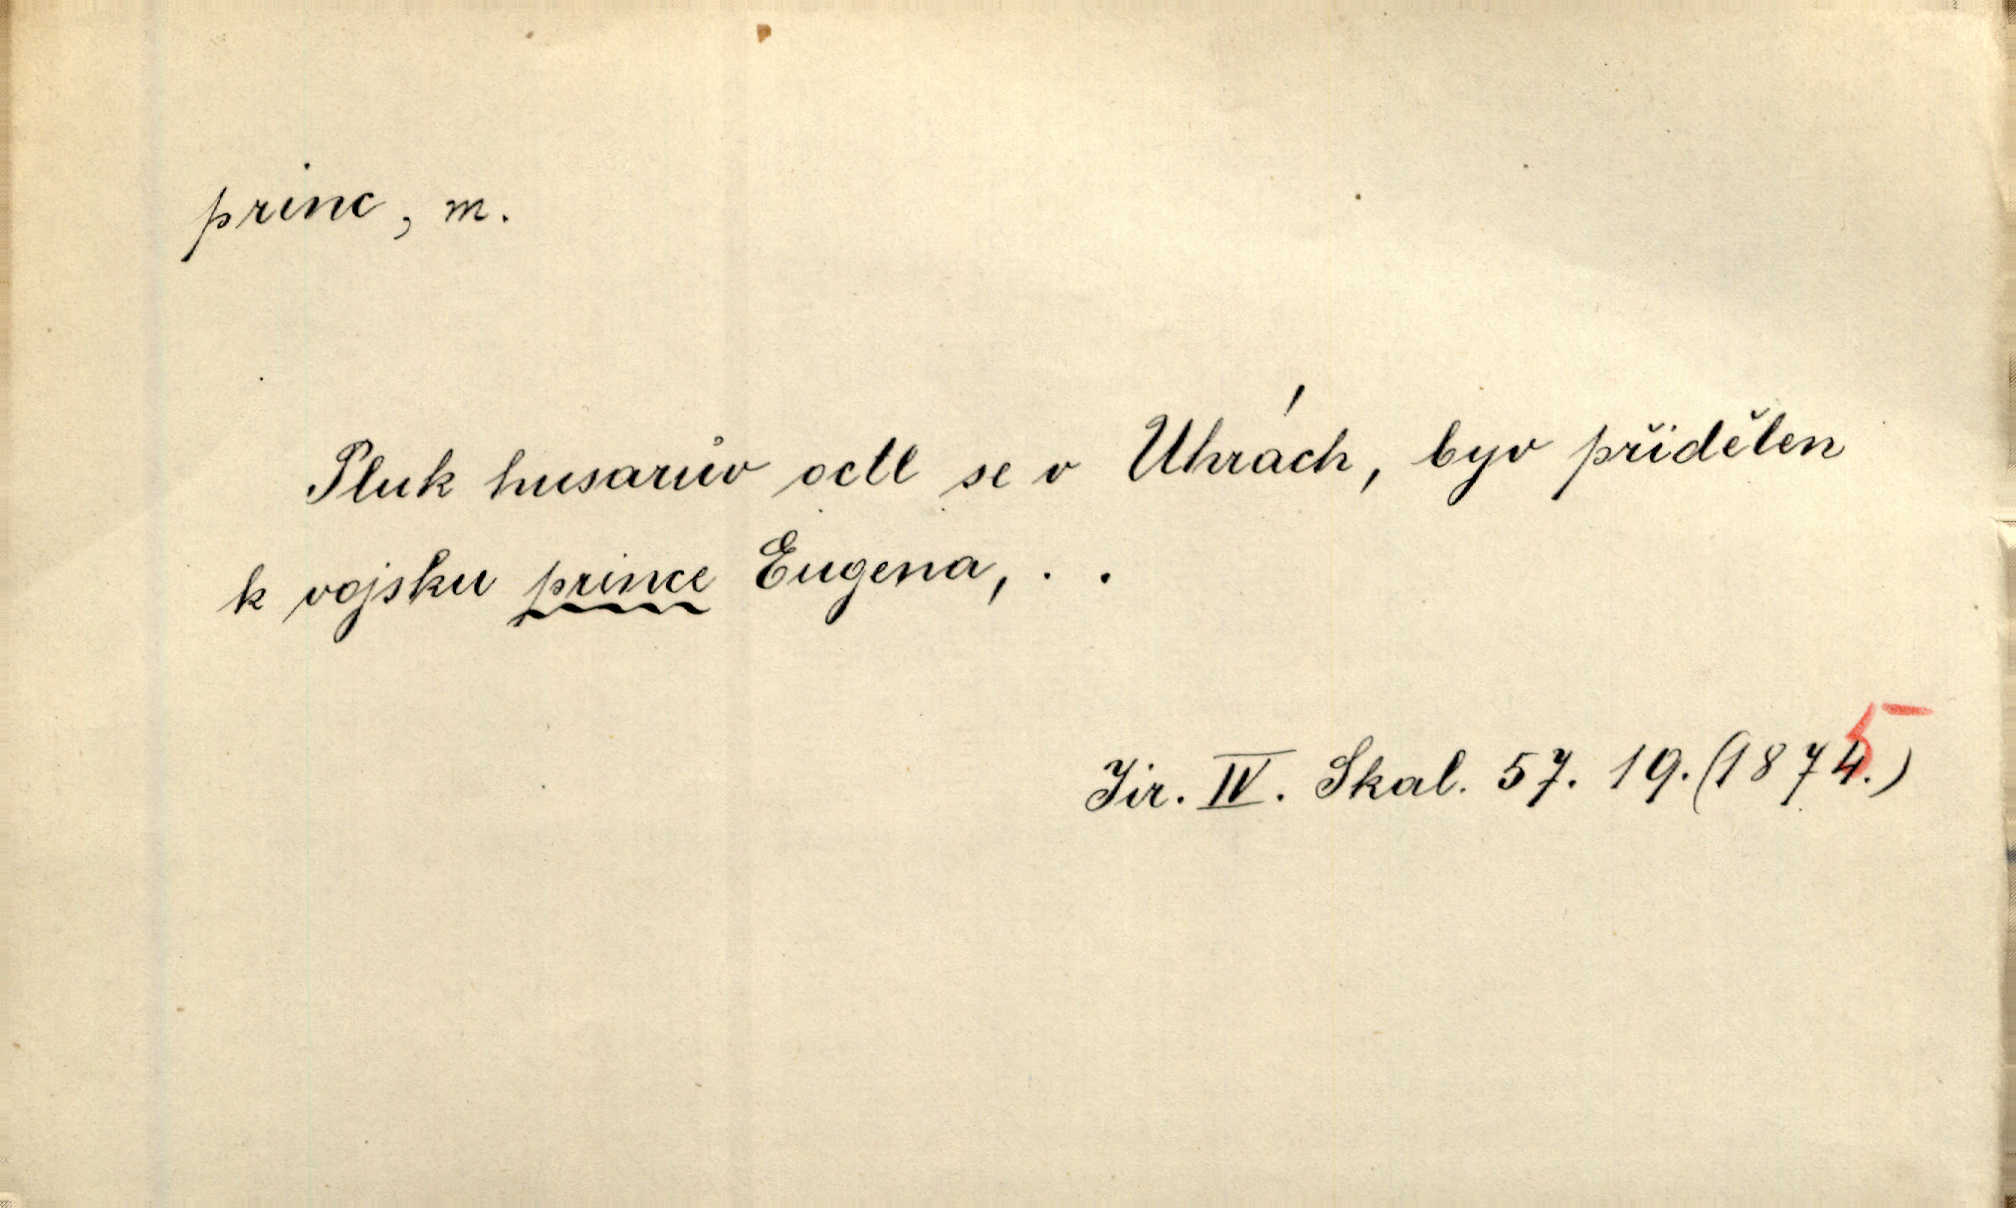 princ, m.
Pluk husarův octl se v Uhrách, byv přidělen
k vojsku prince Eugena, . .
Jir. IV. Skal. 57. 19. (1875.)